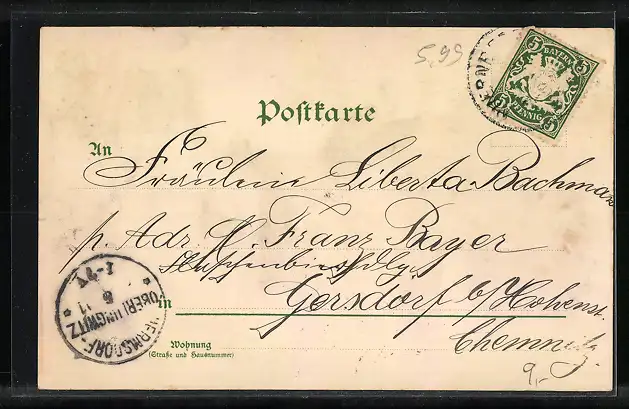 5,99
5 BAYERN 5
5 PFENNIG 5
Postkarte
An
Fräulein Liberta Bachmann
p. Adr. H. Franz Bayer
Gersdorf b/Hohenst.
in
Chemnitz.
Wohnung
(Straße und Hausnummer)
9,-
HERMSDORF
OBERLUNGWITZ